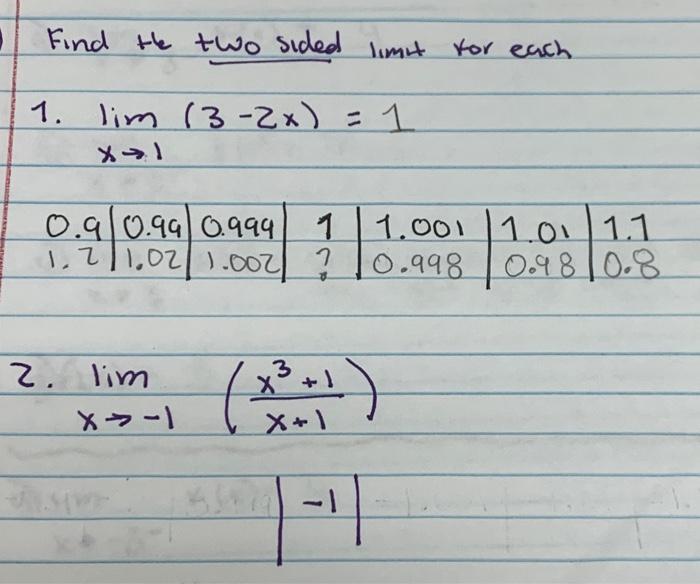 Find the two sided limit for each
1. lim (3-2x) = 1
x→1
0.9 | 0.99 | 0.999 | 1 | 1.001 | 1.01 | 1.1
1.2 | 1.02 | 1.002 | ? | 0.998 | 0.98 | 0.8
2. lim (x³+1 / x+1)
x→-1
| -1 |